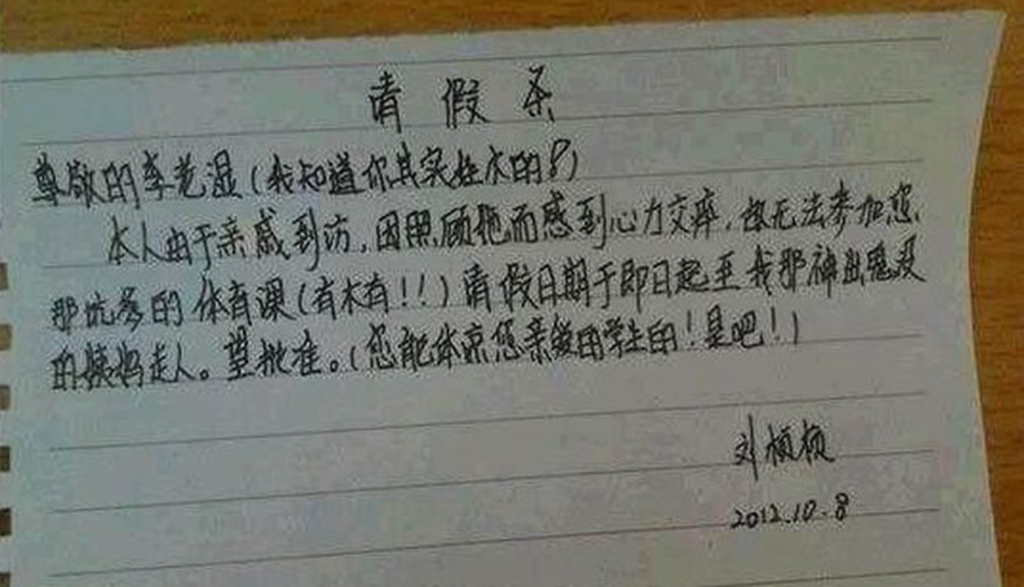 请假条
尊敬的李老湿(我知道你其实姓水的?)
本人由于亲戚到访,因照顾她而感到心力交瘁,故无法参加您
那坑爹的体育课(有木有!!)请假日期于即日起至我那神出鬼没
的姨妈走人。望批准。(您能体谅您亲爱的学生的!是吧!)
刘桢桢
2012.10.8